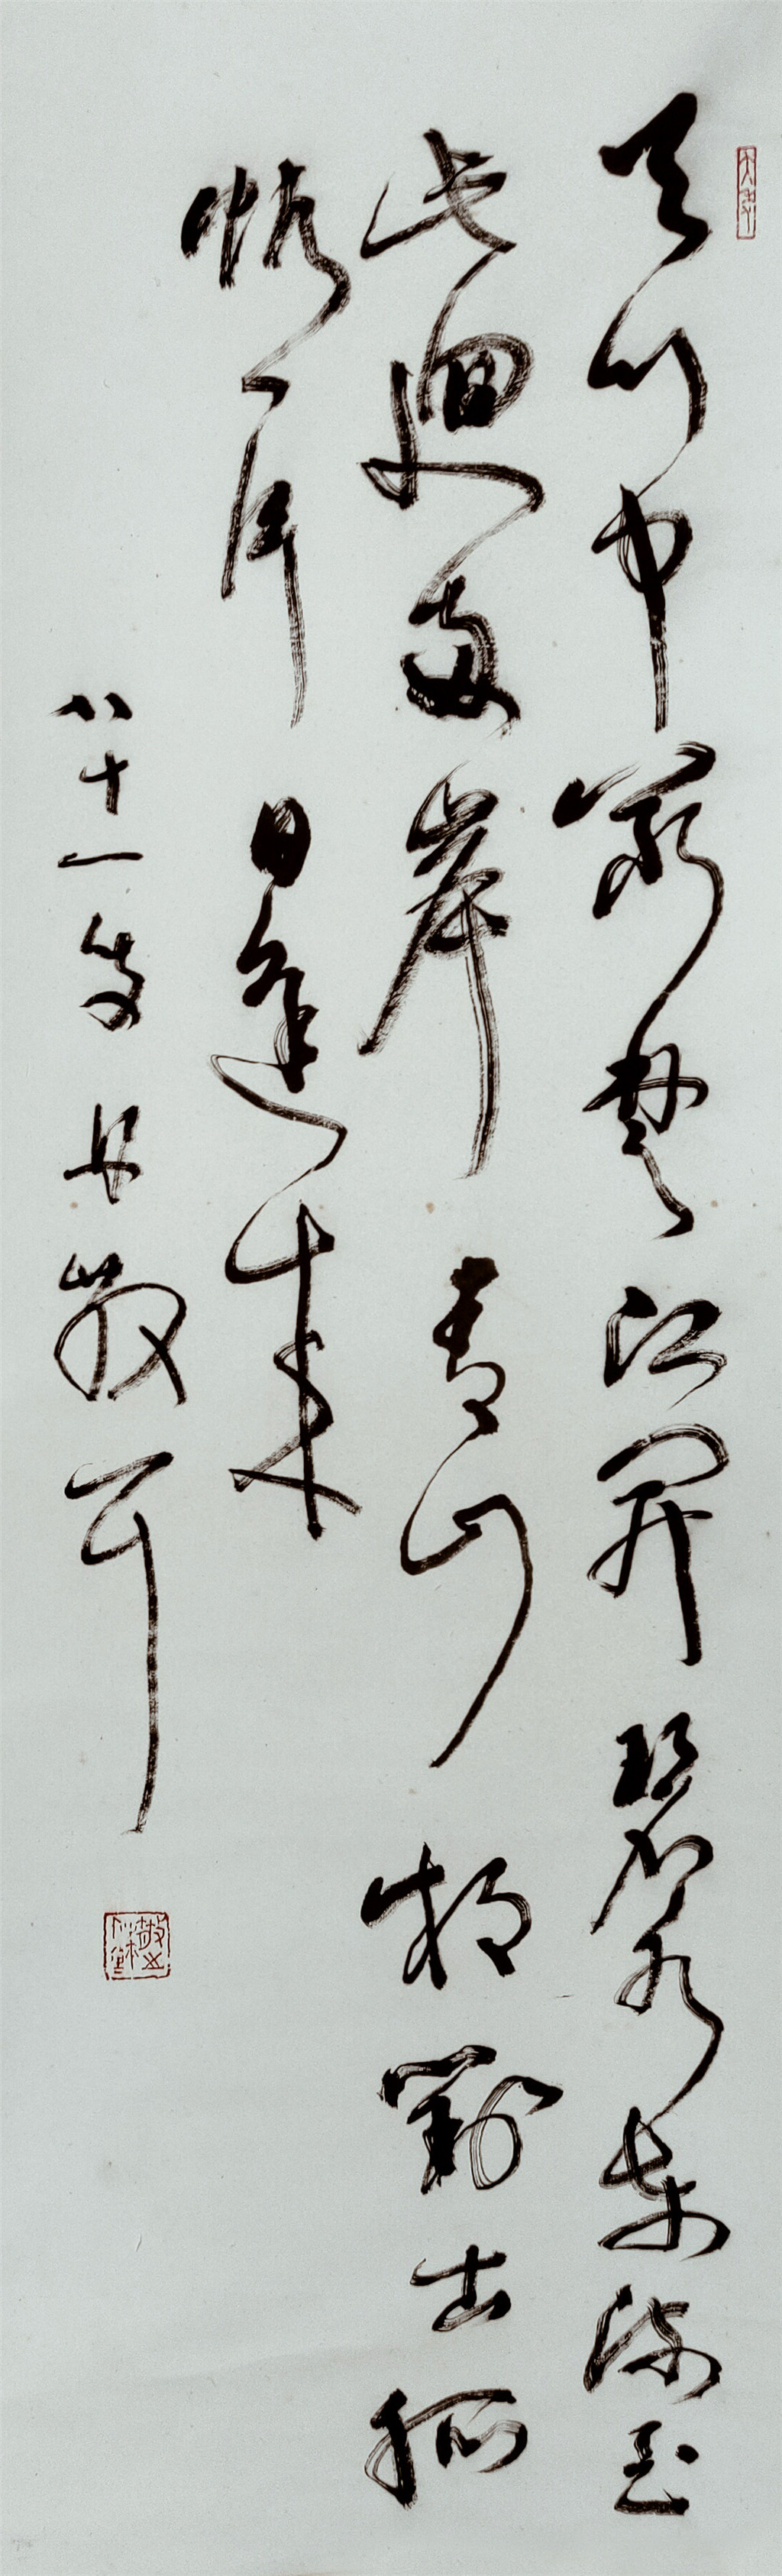 天門中斷楚江開碧水東流至
此迴兩岸青山相對出孤
帆一片日邊來
八十一叟散耳